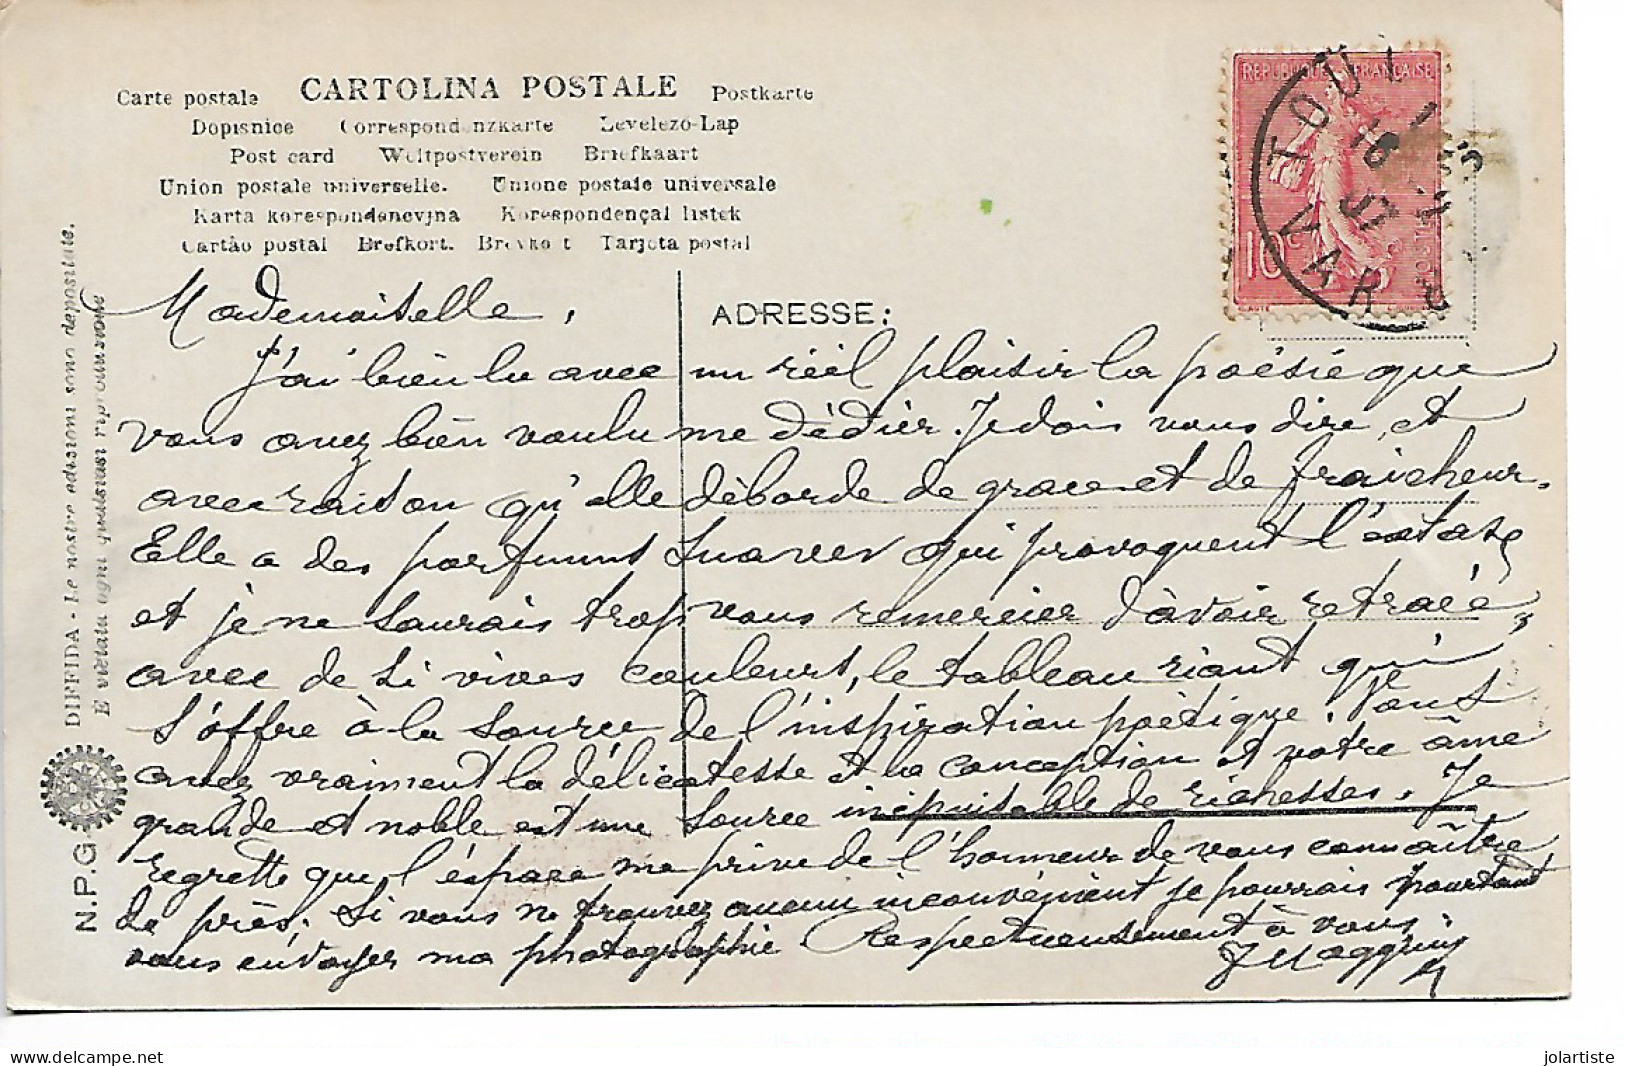 CARTOLINA POSTALE
Carte postale Postkarte
Dopisnice Correspondenzkarte Levelezo-Lap
Post card Weltpostverein Briefkaart
Union postale universelle. Unione postale universale
Karta korespondencyjna Korespondençai listek
Cartão postal Brefkort. Brevkort Tarjeta postal
DIFFIDA - Le nostre edizioni sono depositate.
E vietata ogni qualsiasi riproduzione
N.P.G.
ADRESSE:
REPUBLIQUE FRANÇAISE
10 c
POSTES
TOUL
16
VAR
Mademoiselle,
J'ai bien lu avec un réel plaisir la poésie que
vous avez bien voulu me dédier. Je dois vous dire, et
avec raison qu'elle déborde de grace et de fraicheur.
Elle a des parfums suaves qui provoquent l'extase
et je ne saurais trop vous remercier d'avoir retracé,
avec de si vives couleurs, le tableau riant qui
s'offre à la source de l'inspiration poètique. Vous
avez vraiment la délicatesse et la conception et votre âme
grande et noble est une source inépuisable de richesses. Je
regrette que l'éspace me prive de l'honneur de vous connaître
de près. Si vous ne trouvez aucun inconvénient je pourrais pourtant
vous envoyer ma photographie. Respectueusement à vous.
jolartiste